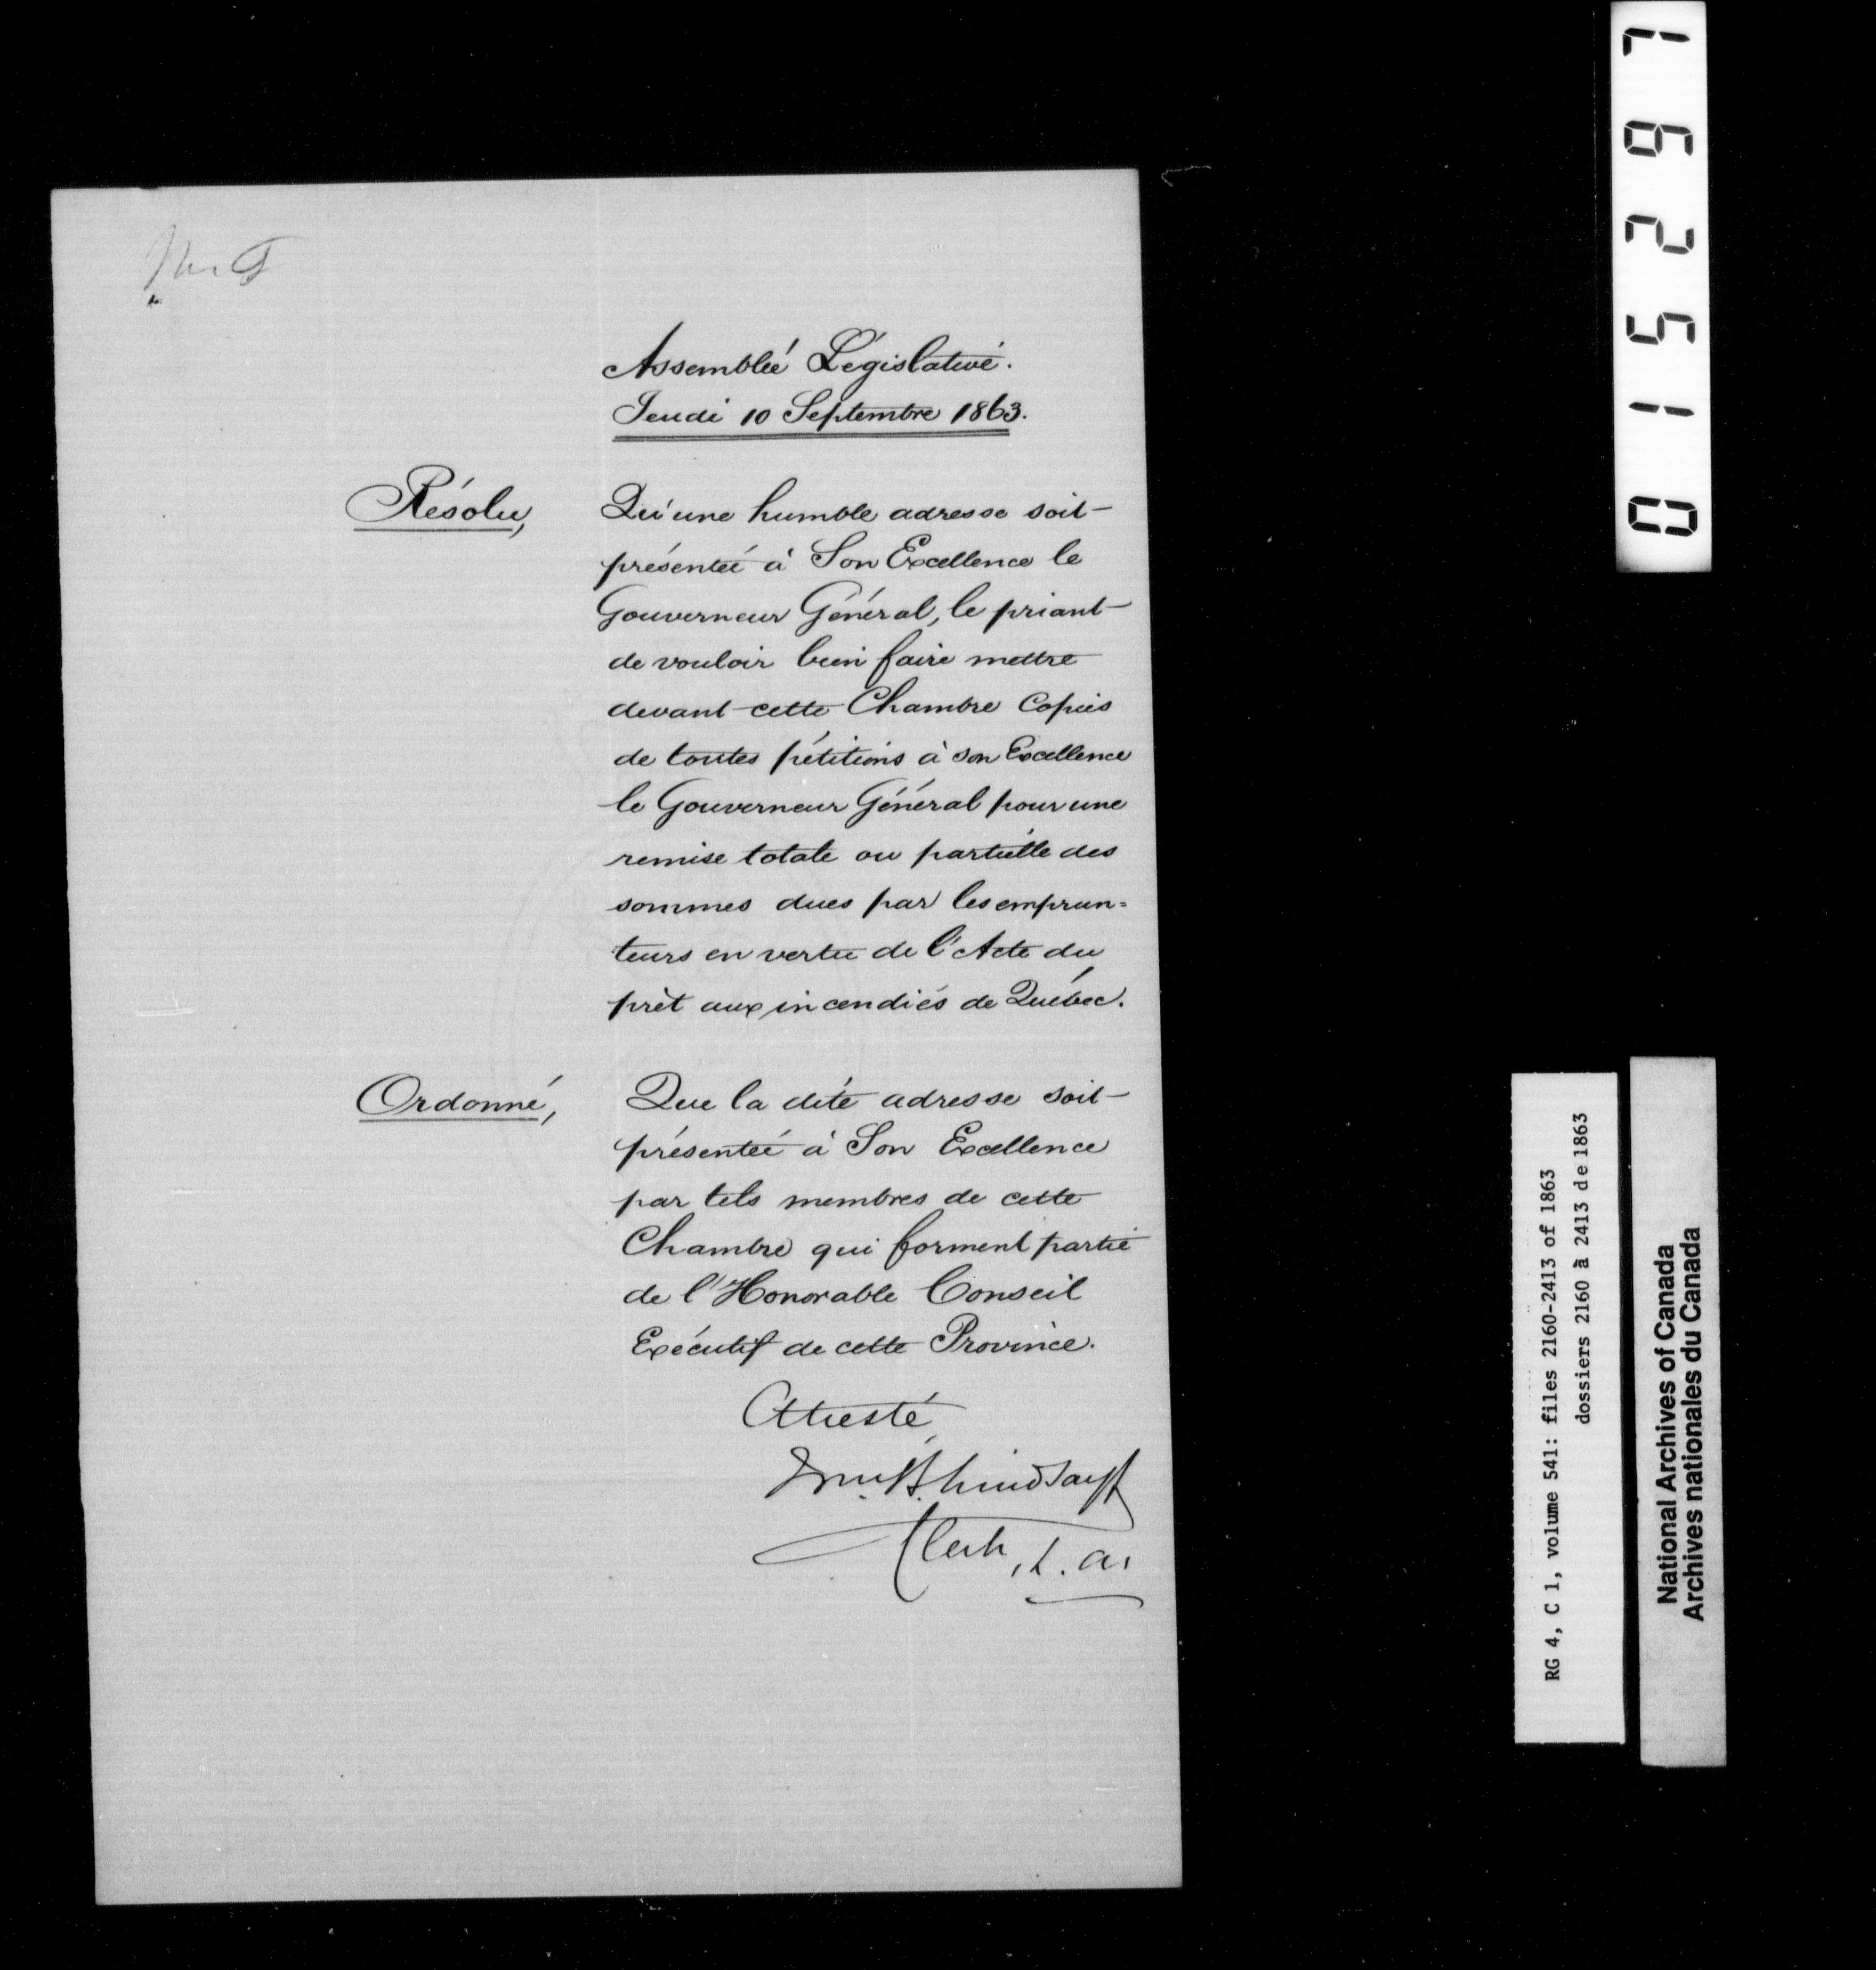 Assemblée Législative.
Jeudi 10 Septembre 1863.
Résolu,
Qu'une humble adresse soit
présentée à Son Excellence le
Gouverneur Général, le priant
de vouloir bien faire mettre
devant cette Chambre Copies
de toutes pétitions à son Excellence
le Gouverneur Général pour une
remise totale ou partielle des
sommes dues par les emprun=
teurs en vertu de l'Acte du
prêt aux incendiés de Québec.
Ordonné,
Que la dite adresse soit
présentée à Son Excellence
par tels membres de cette
Chambre qui forment partie
de l'Honorable Conseil
Exécutif de cette Province.
Attesté,
Wm. B. Lindsay
Clerk, L. A.
015297
RG 4, C 1, volume 541: files 2160-2413 of 1863
dossiers 2160 à 2413 de 1863
National Archives of Canada
Archives nationales du Canada